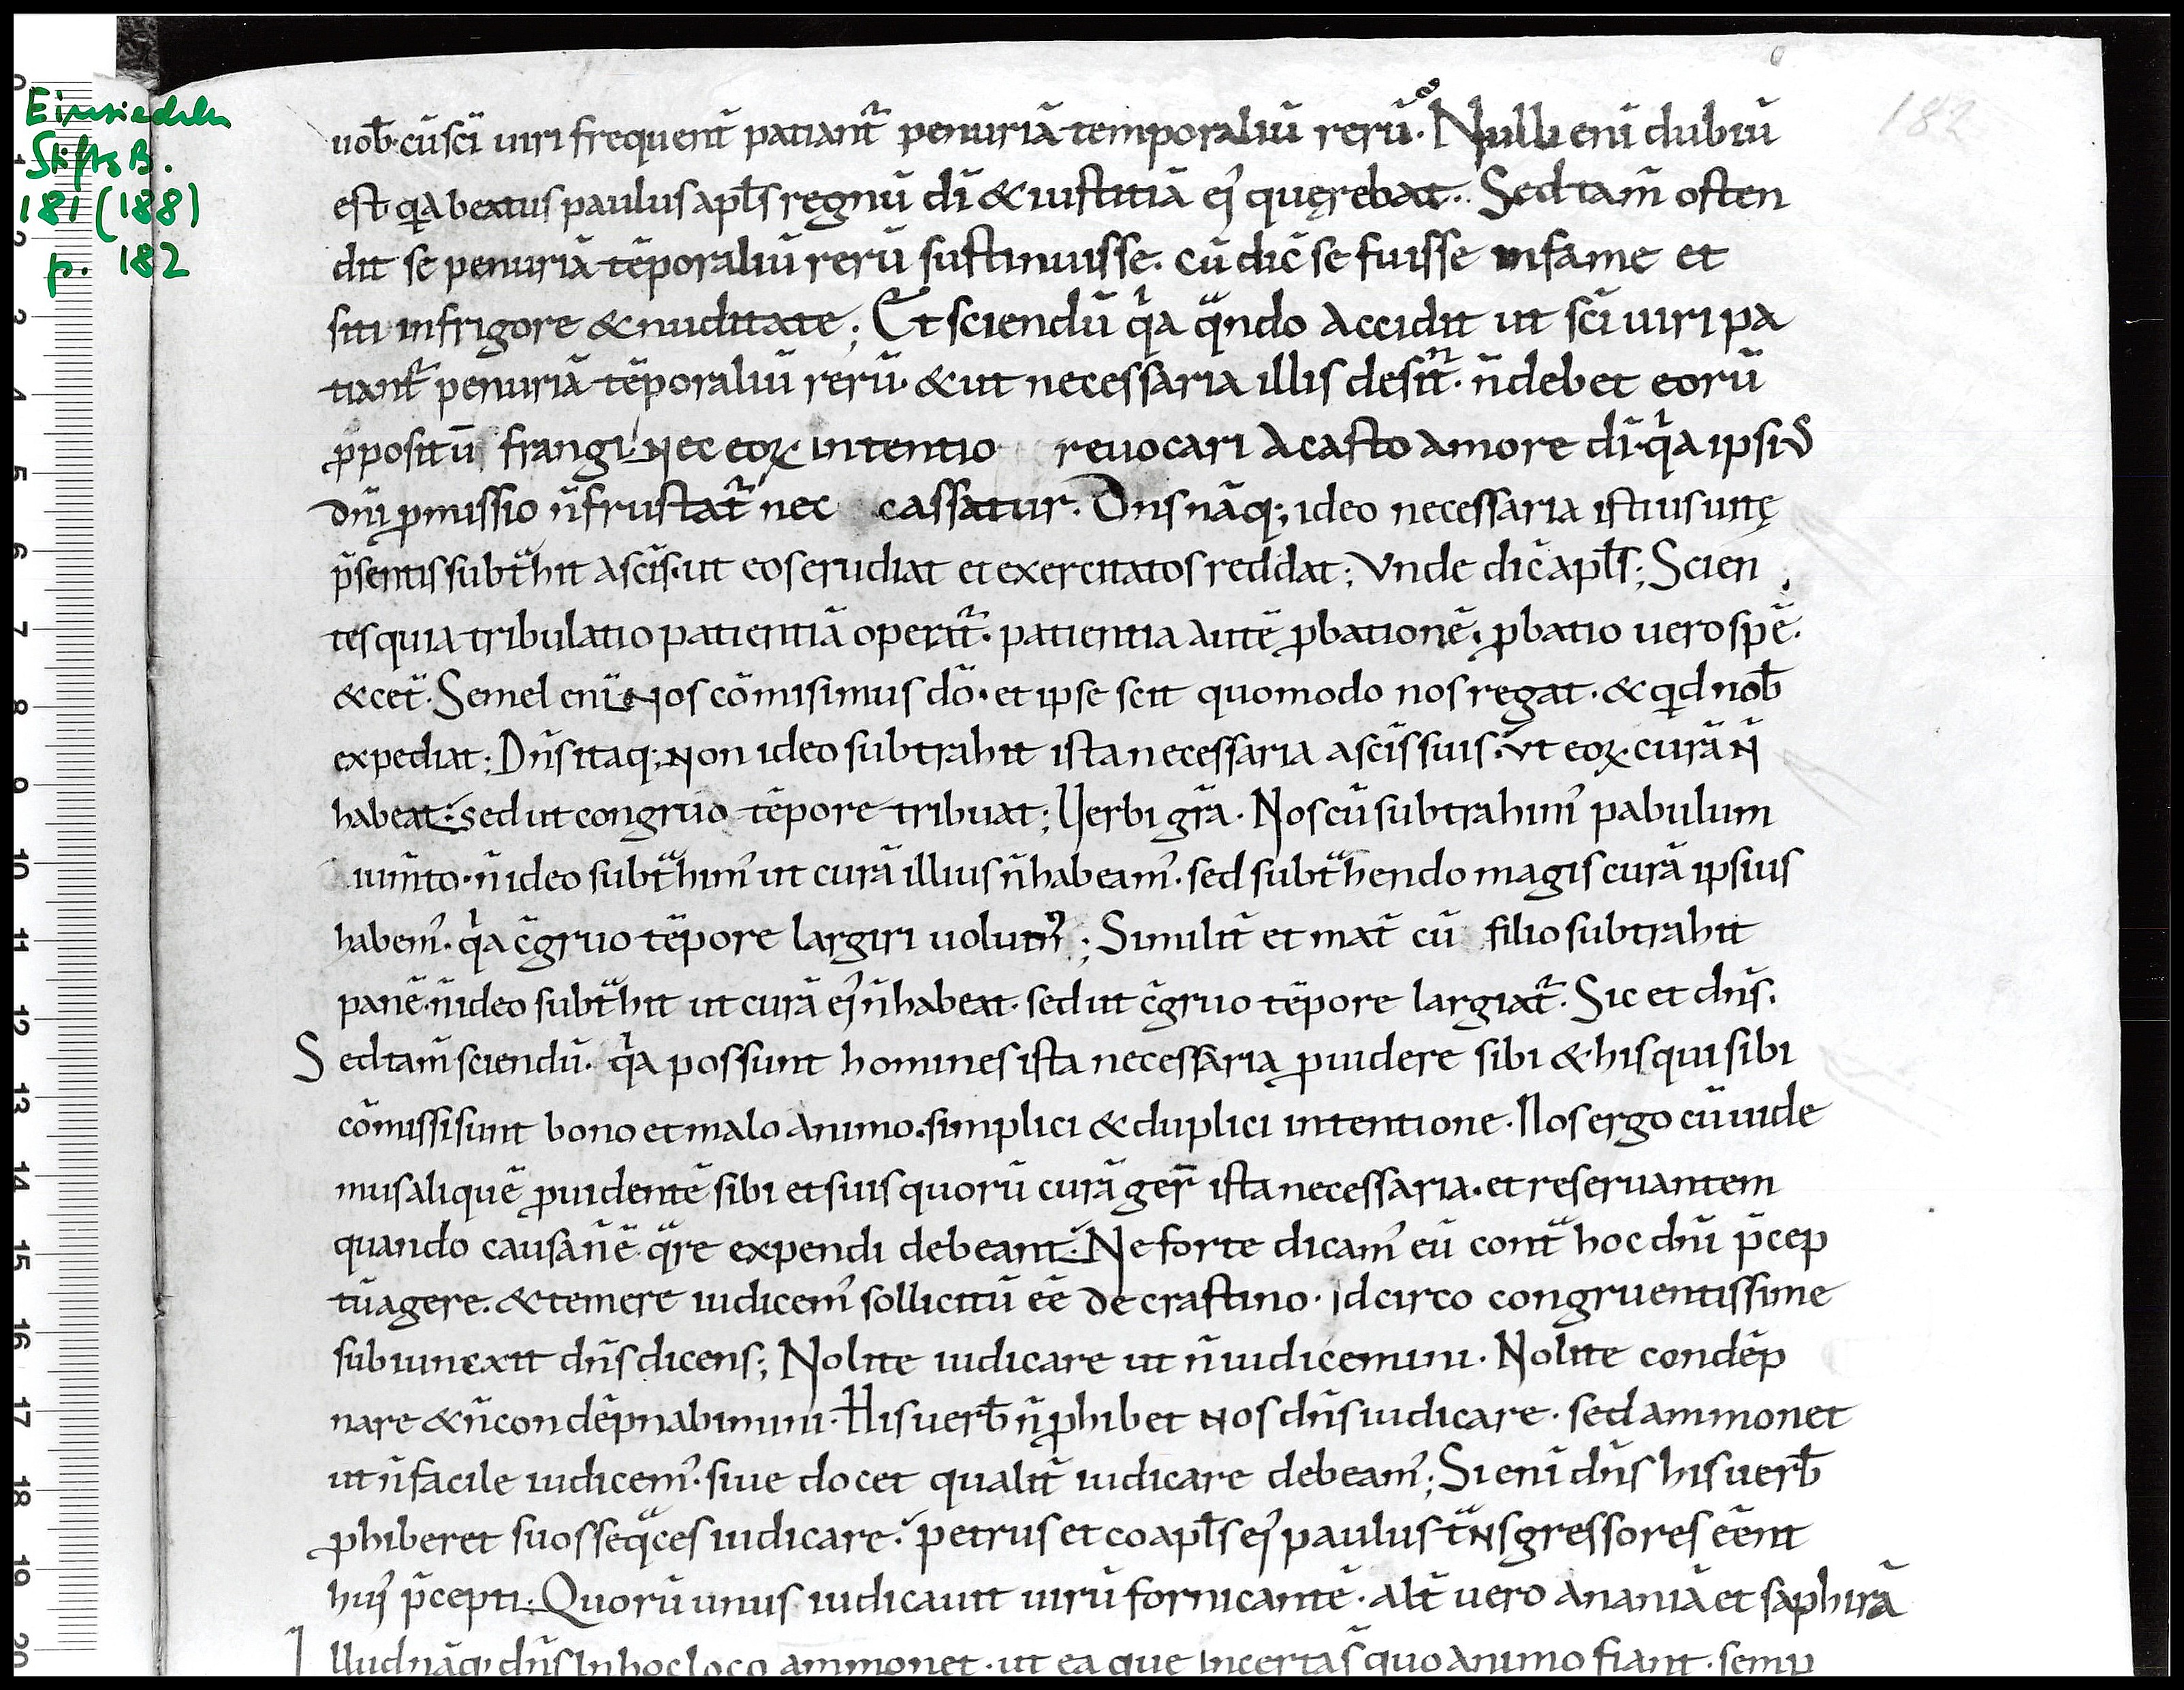 Einsiedeln
StiftsB.
181 (188)
p. 182
182
uob̄· cū sc̄i uiri frequent̄ patiant᷑ penuriā temporaliū rerū· Nulli enī dubiū
est· quia beatus paulus apl̄s regnū dī & iustitiā ei᾽ quęrebat· Sed tam̄ osten
dit se penuriā tēporaliū rerū sustinuisse· cū dic̄ se fuisse in fame et
siti in frigore & nuditate; Et sciendū qia qando accidit ut sc̄i uiri pa
tiant᷑ penuriā tēporaliū rerū· & ut necessaria illis desint· n̄ debet eorū
ꝓpositū frangi· Nec eoꝝ intentio reuocari a casto amore dī· qia ipsi᾽
dn̄i ꝓmissio n̄ frustat᷑ nec cassatur· Dn̄s nāq; ideo necessaria istius uitę
p̄sentis subtͣhit a sc̄is· ut eos erudiat et exercitatos reddat; Vnde dic̄ apl̄s; Scien
tes quia tribulatio patientiā operat᷑· patientia autē ꝓbationē· ꝓbatio uero spē·
& cet̄· Semel enī Nos cōmisimus dō· et ipse scit quomodo nos regat· & quid nob̄
expediat; Dn̄s itaq; Non ideo subtrahit ista necessaria a sc̄is suis· Vt eoꝝ curā N̄
habeat· sed ut congruo tēpore tribuat; Verbi gr̄a· Nos cū subtrahim᾽ pabulum
ium̄to· n̄ ideo subtͣhim᾽ ut curā illius n̄ habeam᾽· sed subtͣhendo magis curā ipsius
habem᾽· qia c̄gruo tēpore largiri uolum᾽; Similit̄ et mat̄ cū filio subtrahit
panē· n̄ ideo subtͣhit ut curā ei᾽ n̄ habeat· sed ut c̄gruo tēpore largiat᷑· Sic et dn̄s·
Sed tam̄ sciendū· qia possunt homines ista necessaria ꝓuidere sibi & his qui sibi
cōmissi sunt bono et malo animo· simplici & duplici intentione· Nos ergo cū uide
mus aliquē ꝓuidentē sibi et suis quorū curā ger̄ ista necessaria· et reseruantem
quando causa n̄ ē qͣre expendi debeant· Ne forte dicam᾽ eū contͣ hoc dn̄i p̄cep
tū agere· & temere iudicem᾽ sollicitū eē de crastino· Idcirco congruentissime
subiuncxit dn̄s dicens; Nolite iudicare ut n̄ iudicemini· Nolite condēp
nare & n̄ condēpnabimini· His uerb̄ n̄ ꝓhibet Nos dn̄s iudicare· sed ammonet
ut n̄ facile iudicem᾽· siue docet qualit̄ iudicare debeam᾽; Si enī dn̄s his uerb̄
ꝓhiberet suos seqͣces iudicare· petrus et coapl̄s ei᾽ paulus tͣNsgressores eēnt
hui᾽ p̄cepti· Quorū unus iudicauit uirū fornicantē· alt̄ uero ananiā et saphirā
Illud nāq; dn̄s In hoc loco ammonet· ut ea que Incerta s̄ quo animo fiant· semꝑ